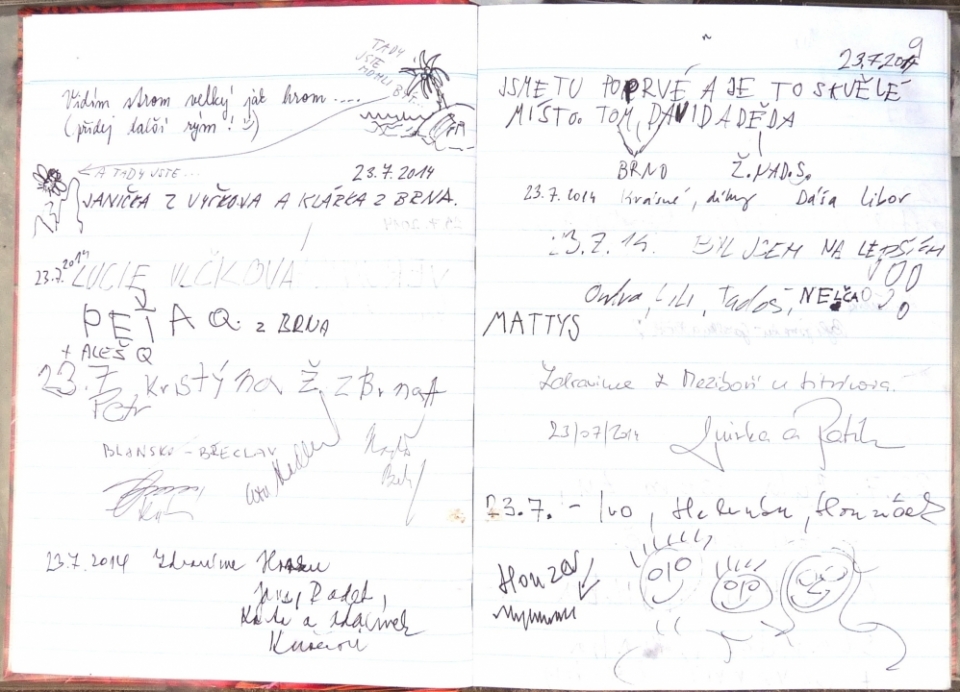 TADY
JSTE
MOHLI BÝT...
Vidím strom velký jak hrom....
(přidej další rým! :-)
A TADY JSTE...
23.7.2014
JANIČKA Z VLČKOVA A KLÁRKA Z BRNA.
23.7.2014 LUCIE VLČKOVÁ
PEŤA Q. z BRNA
+ ALEŠ Q
23.7 Kristýna Ž. z Brna
Petr
BLANSKO - BŘECLAV
23.7.2014 Zdravíme
Radek,
a
9
23.7.2014
JSME TU POPRVÉ A JE TO SKVĚLÉ
MÍSTO. TOM, DAVID A DĚDA
BRNO Ž.NAD.S.
23.7.2014 Krásné, díky Dáša Libor
23.7.14. BYL JSEM NA LEPŠÍM
Lili, Tadoš, NELČA
MATTYS
Zdravíme z Meziboří u Litvínova.
23/07/2014
23.7. - Ivo, Helenka, Honzáček
Honza